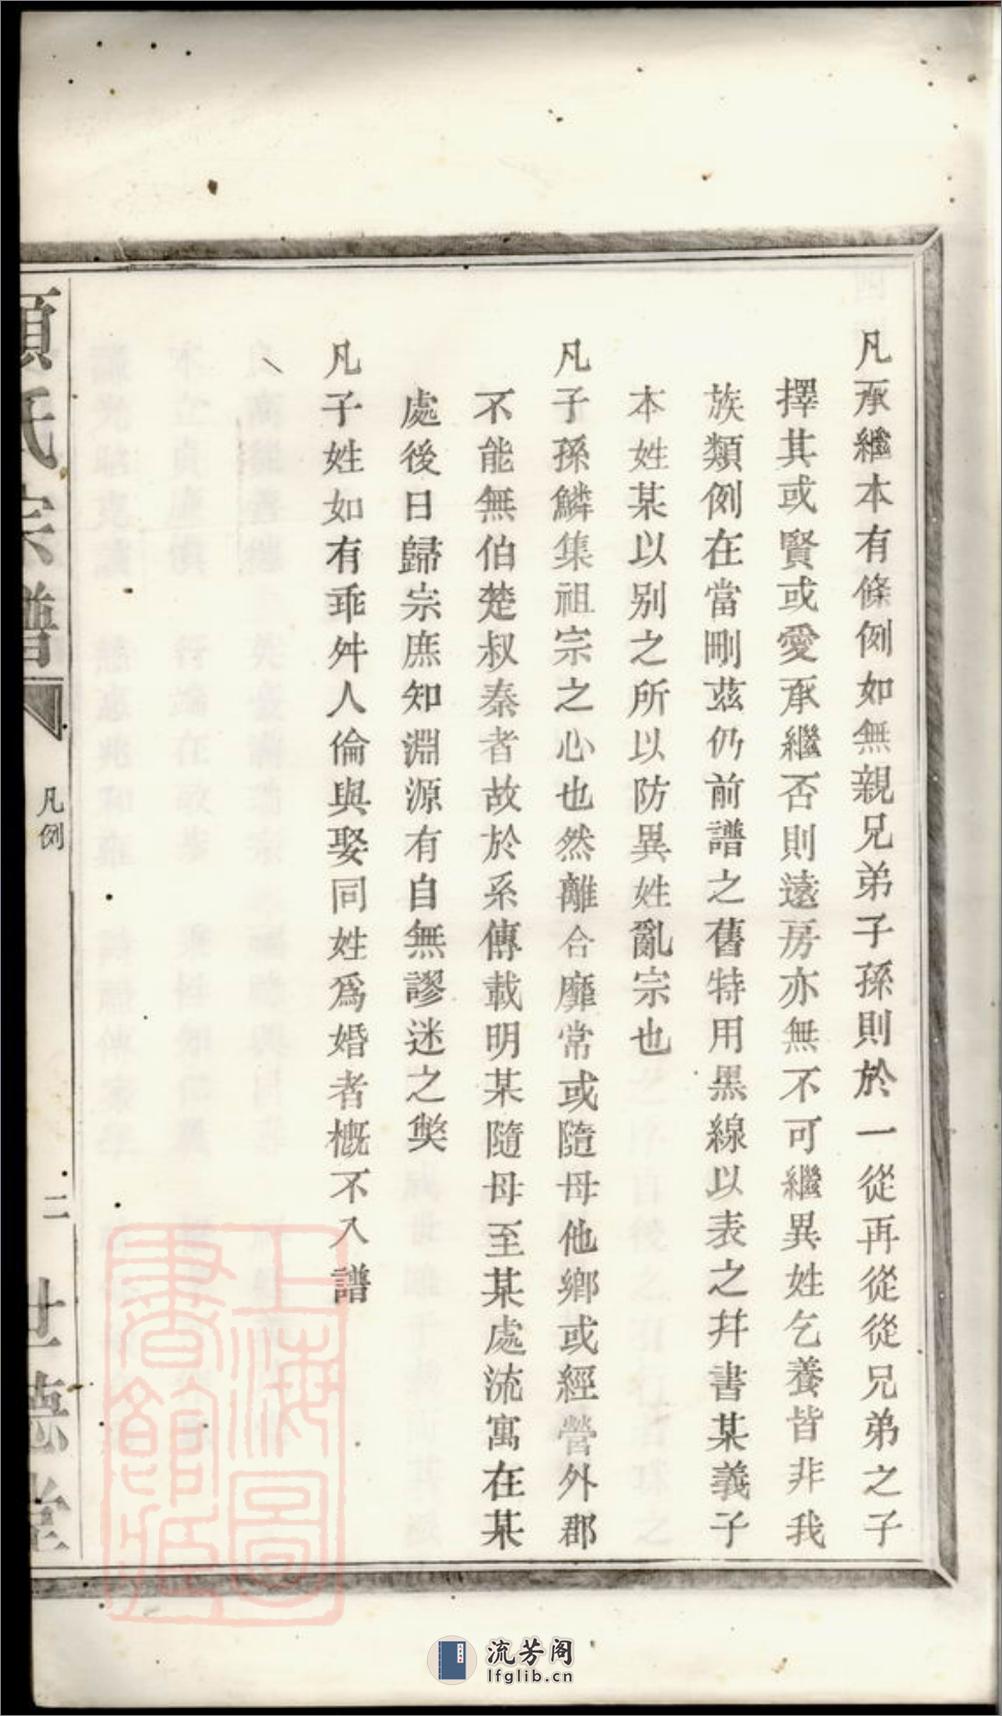 凡承繼本有條例如無親兄弟子孫則於一從再從從兄弟之子
擇其或賢或愛承繼否則遠房亦無不可繼異姓乞養皆非我
族類例在當刪茲仍前譜之舊特用黑線以表之幷書某義子
本姓某以别之所以防異姓亂宗也
凡子孫鱗集祖宗之心也然離合靡常或隨母他鄉或經營外郡
不能無伯楚叔秦者故於系傳載明某隨母至某處流寓在某
處後日歸宗庶知淵源有自無謬迷之獘
凡子姓如有乖舛人倫與娶同姓爲婚者槪不入譜
氏宗譜
凡例
二
世德堂
上海圖
書館藏
流芳阁
lfglib.cn